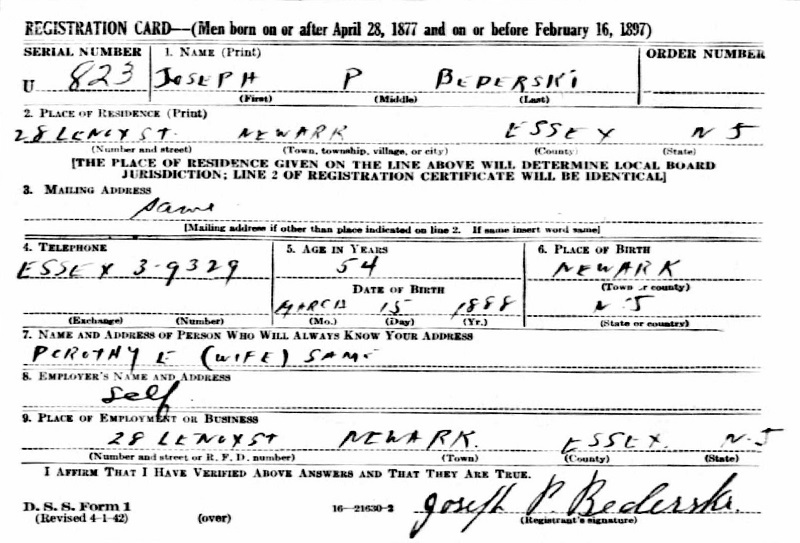 REGISTRATION CARD—(Men born on or after April 28, 1877 and on or before February 16, 1897)
SERIAL NUMBER 1. NAME (Print) ORDER NUMBER
U 823 JOSEPH P BEDERSKI
(First) (Middle) (Last)
2. PLACE OF RESIDENCE (Print)
28 LENOX ST. NEWARK ESSEX N J
(Number and street) (Town, township, village, or city) (County) (State)
[THE PLACE OF RESIDENCE GIVEN ON THE LINE ABOVE WILL DETERMINE LOCAL BOARD
JURISDICTION; LINE 2 OF REGISTRATION CERTIFICATE WILL BE IDENTICAL]
3. MAILING ADDRESS
Same
[Mailing address if other than place indicated on line 2. If same insert word same]
4. TELEPHONE 5. AGE IN YEARS 6. PLACE OF BIRTH
ESSEX 3-9329 54 NEWARK
DATE OF BIRTH (Town or county)
MARCH 15 1888 N-J
(Exchange) (Number) (Mo.) (Day) (Yr.) (State or country)
7. NAME AND ADDRESS OF PERSON WHO WILL ALWAYS KNOW YOUR ADDRESS
E (WIFE) SAME
8. EMPLOYER'S NAME AND ADDRESS
Self
9. PLACE OF EMPLOYMENT OR BUSINESS
28 LENOX ST NEWARK. ESSEX. N-J
(Number and street or R. F. D. number) (Town) (County) (State)
I AFFIRM THAT I HAVE VERIFIED ABOVE ANSWERS AND THAT THEY ARE TRUE.
D. S. S. Form 1
(Revised 4-1-42) (over) 16—21630-2 Joseph P. Bederski
(Registrant's signature)